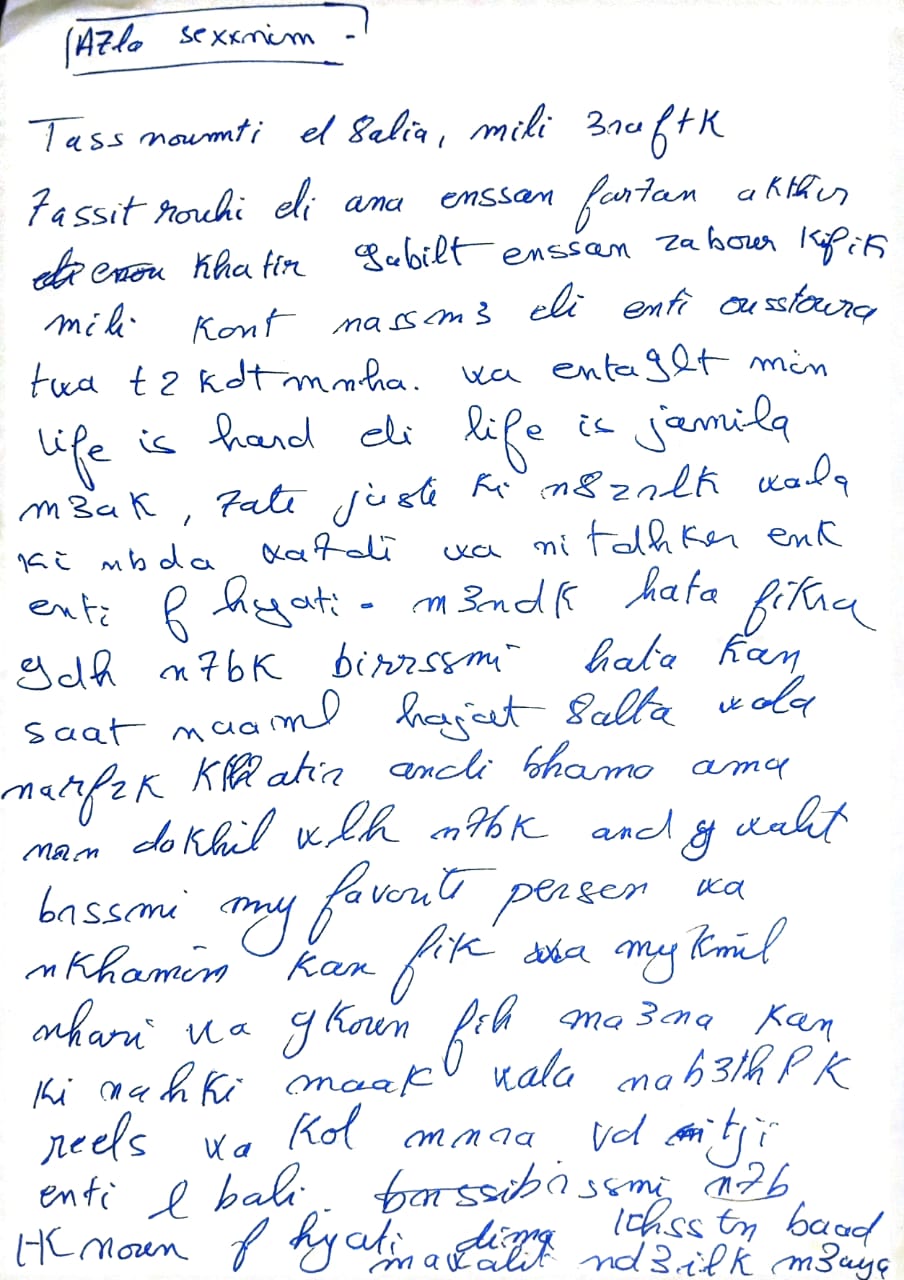 A7la sexxnim -
Tass noumti el 8alia, mili 3raftK
7assit rouhi eli ana enssan far7an akthir
Khatir gabilt enssan zabour Kifik
mili Kont nassm3 eli enti ousstoura
twa t2Kdt mnha. wa enta9lt min
life is hard eli life is jamila
m3aK, 7ata juste Ki n8znlK wala
Ki nbda wa7di wa nitdhKer enK
enti f hyati - m3ndK hata fiKra
9dh n7bK birrssmi hata Kan
saat naaml hajat 8alta wala
narfzK Khatir andi bhamo ama
man doKhil wlh n7bK and walit
brssmi my favorite person wa
nKhamim Kan fik wa myKmil
nhari wa yKoun fih ma3na Kan
Ki nahKi maaK wala nab3thlK
reels wa Kol mnra vd itji
enti l bali. brssmi n7b
nKoun f hyati dima lchsstn baad
mawalit nd3ilK m3aya